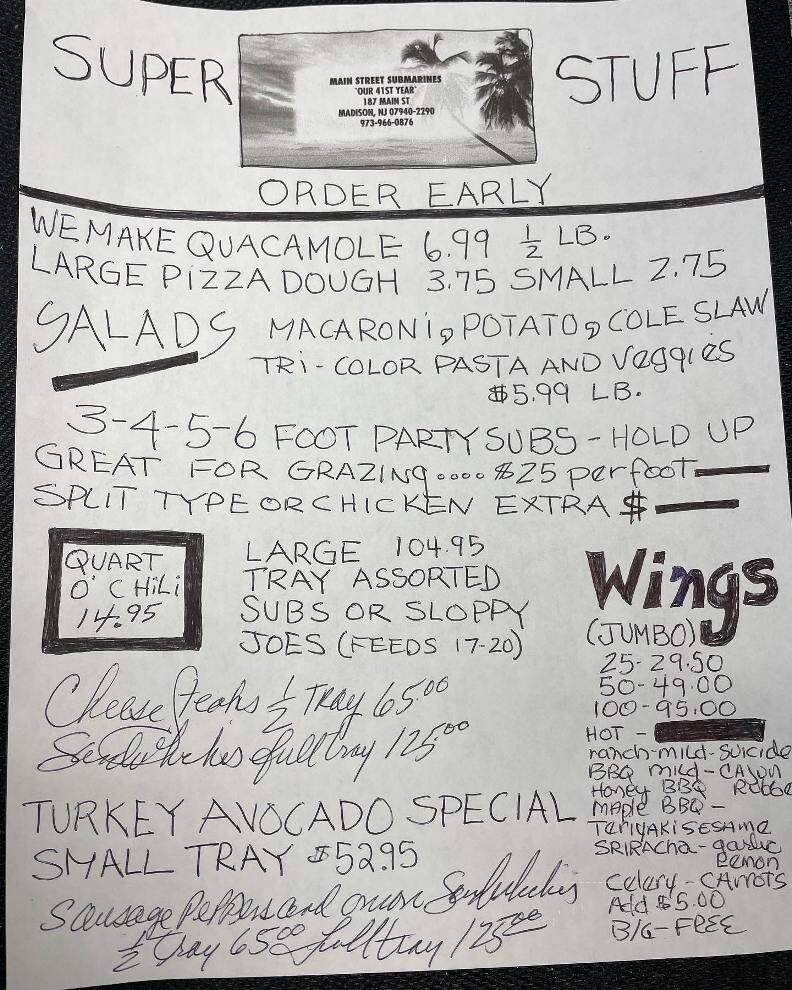 SUPER STUFF
MAIN STREET SUBMARINES
"OUR 41ST YEAR"
187 MAIN ST
MADISON, NJ 07940-2290
973-966-0876
ORDER EARLY
WE MAKE QUACAMOLE 6.99 ½ LB.
LARGE PIZZA DOUGH 3.75 SMALL 2.75
SALADS MACARONi, POTATO, COLE SLAW
TRi-COLOR PASTA AND Veggies
$5.99 LB.
3-4-5-6 FOOT PARTY SUBS - HOLD UP
GREAT FOR GRAZING.... $25 per foot
SPLIT TYPE OR CHICKEN EXTRA $
QUART
O' CHiLi
14.95
LARGE 104.95
TRAY ASSORTED
SUBS OR SLOPPY
JOES (FEEDS 17-20)
Cheese Steaks ½ Tray 65.00
Sandwhiches full tray 125.00
TURKEY AVOCADO SPECIAL
SMALL TRAY $52.95
Sausage Peppers and onion Sandwhiches
½ tray 65.00 full tray 125.00
Wings
(JUMBO)
25-29.50
50-49.00
100-95.00
HOT -
ranch-mild-Suicide
BBQ mild-CAJUN
Honey BBQ
MAPle BBQ -
TeriYAKi SESAme
SRIRACHA- garlic
Lemon
Celery - CArrotS
Add $5.00
B/C-FREE